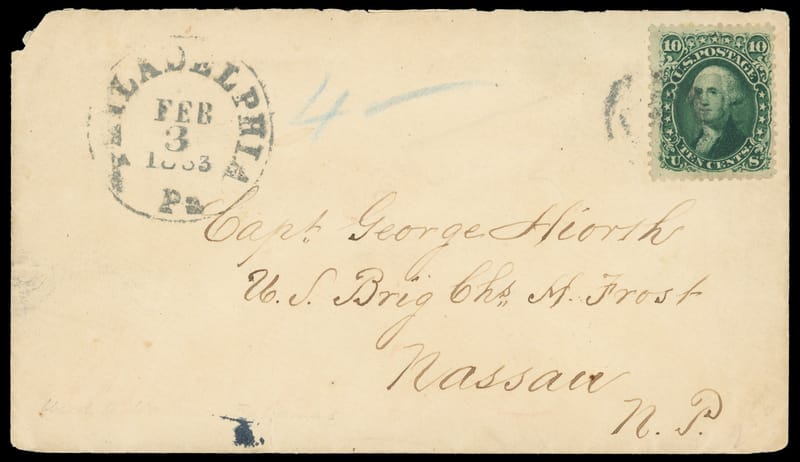 PHILADELPHIA
FEB
3
1863
Pa
4
10 10
U.S. POSTAGE
TEN CENTS
U S
Capt. George Hiorth
U. S. Brig Chs. H. Frost
Nassau
N. P.